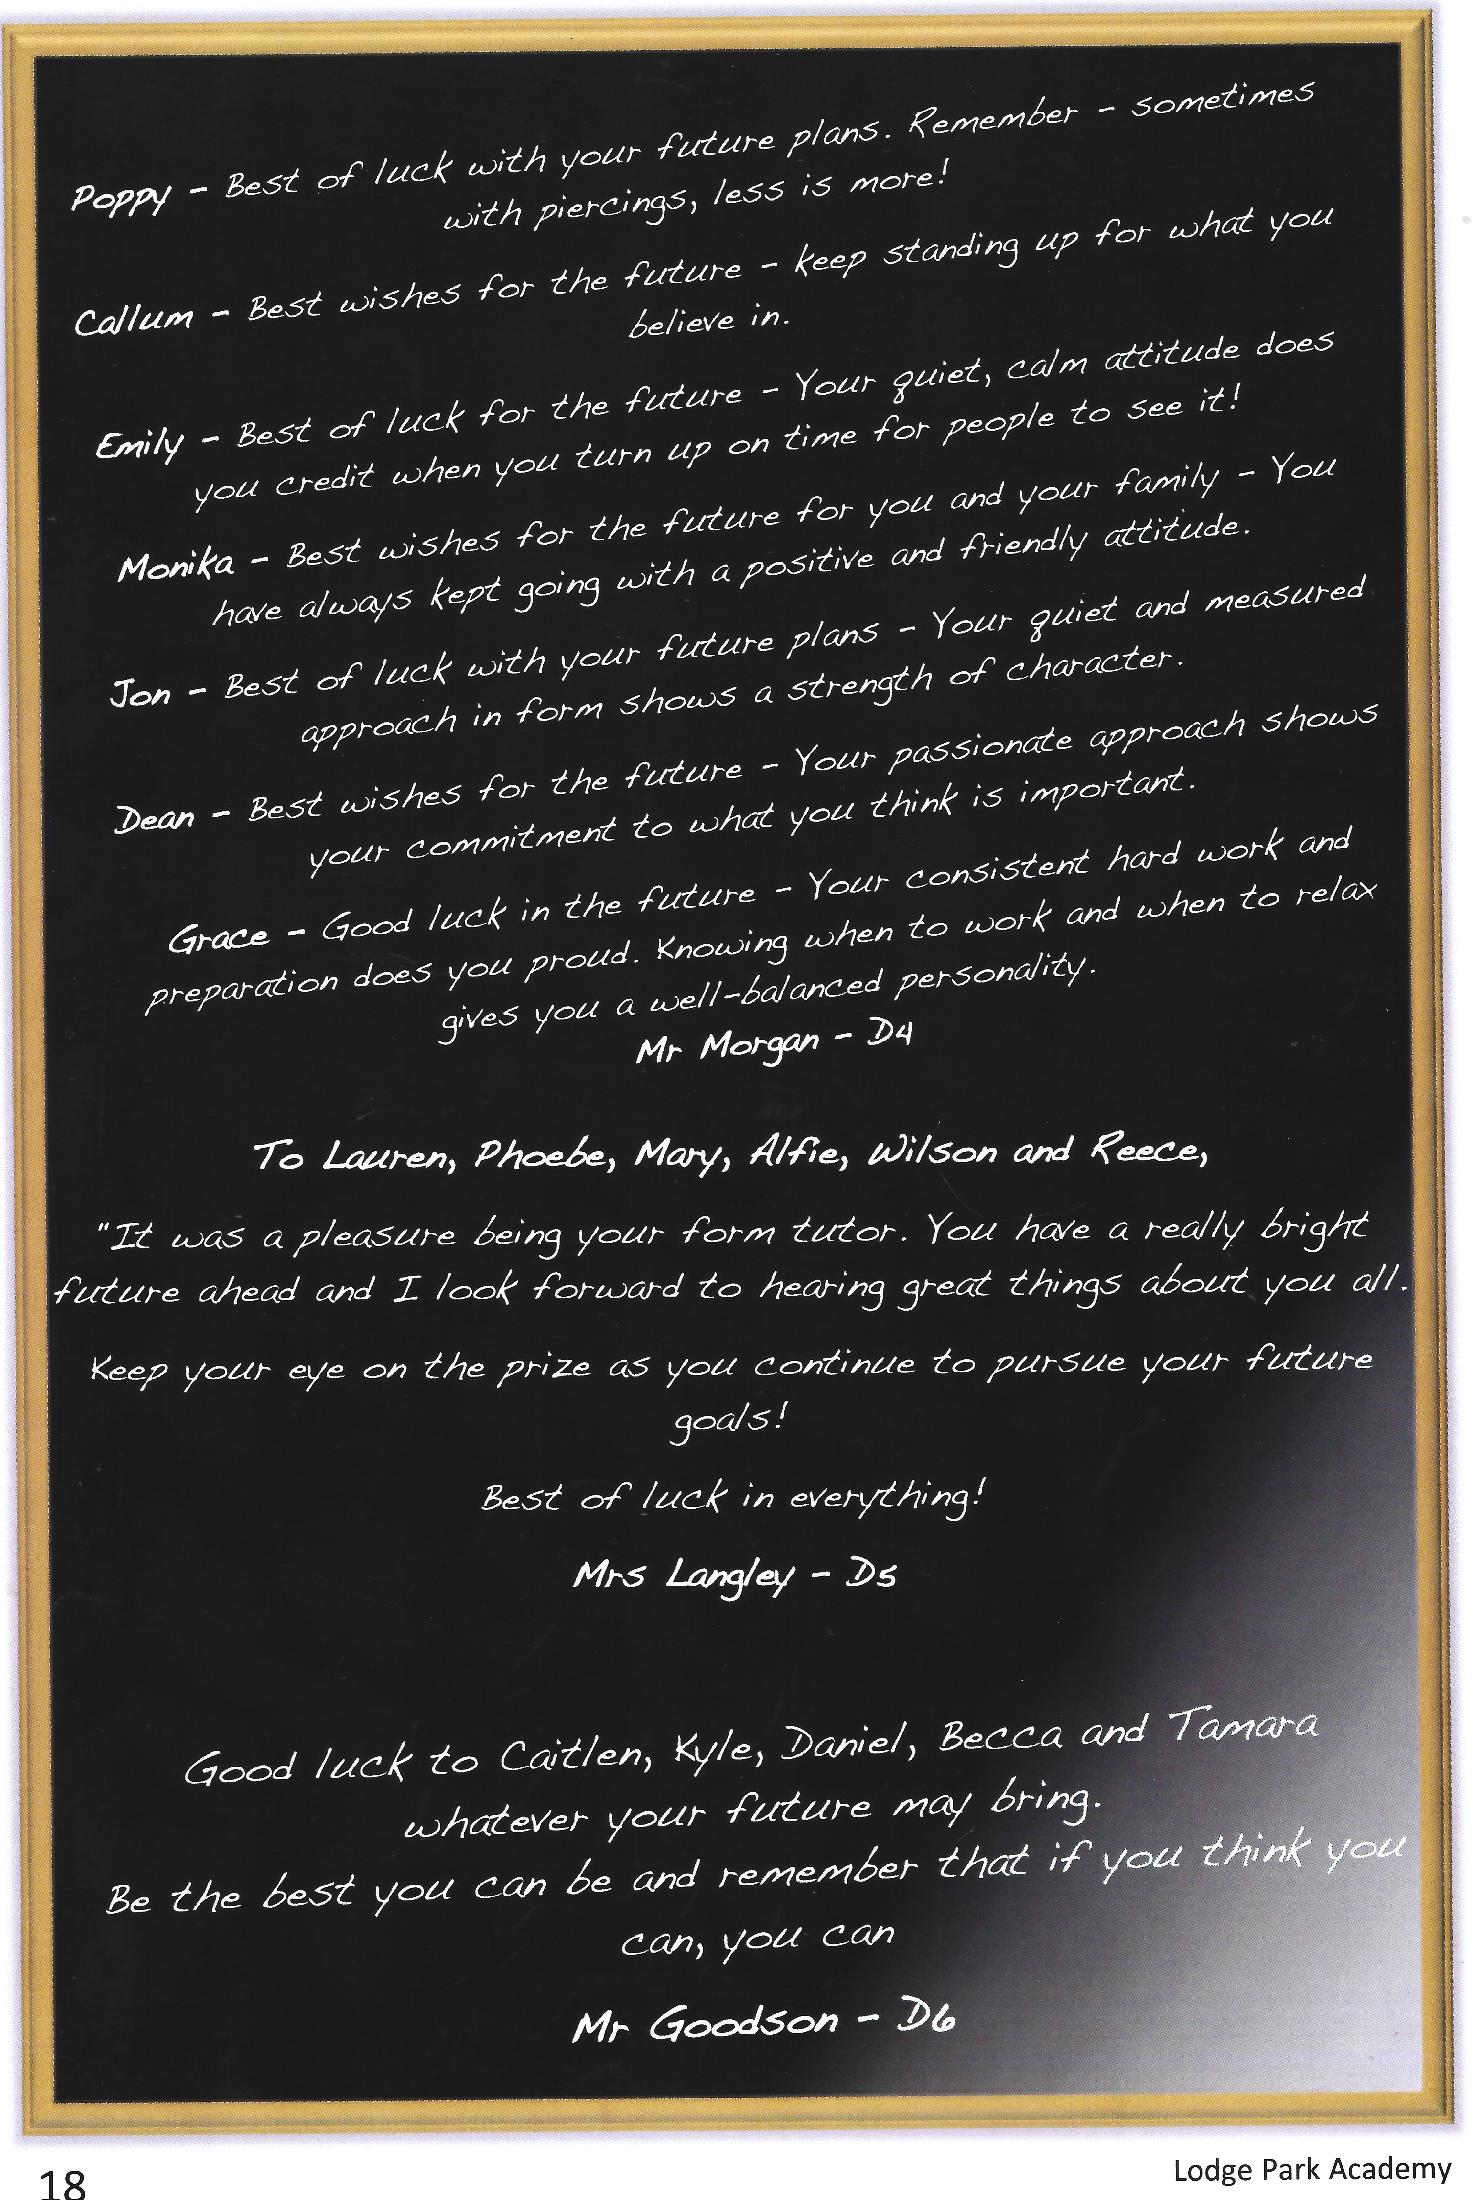 Poppy - Best of luck with your future plans. Remember - sometimes
with piercings, less is more!
Callum - Best wishes for the future - keep standing up for what you
believe in.
Emily - Best of luck for the future - Your quiet, calm attitude does
you credit when you turn up on time for people to see it!
Monika - Best wishes for the future for you and your family - You
have always kept going with a positive and friendly attitude.
Jon - Best of luck with your future plans - Your quiet and measured
approach in form shows a strength of character.
Dean - Best wishes for the future - Your passionate approach shows
your commitment to what you think is important.
Grace - Good luck in the future - Your consistent hard work and
preparation does you proud. Knowing when to work and when to relax
gives you a well-balanced personality.
Mr Morgan - D4
To Lauren, Phoebe, Mary, Alfie, Wilson and Reece,
"It was a pleasure being your form tutor. You have a really bright
future ahead and I look forward to hearing great things about you all.
Keep your eye on the prize as you continue to pursue your future
goals!
Best of luck in everything!
Mrs Langley - D5
Good luck to Caitlen, Kyle, Daniel, Becca and Tamara
whatever your future may bring.
Be the best you can be and remember that if you think you
can, you can
Mr Goodson - D6
18
Lodge Park Academy